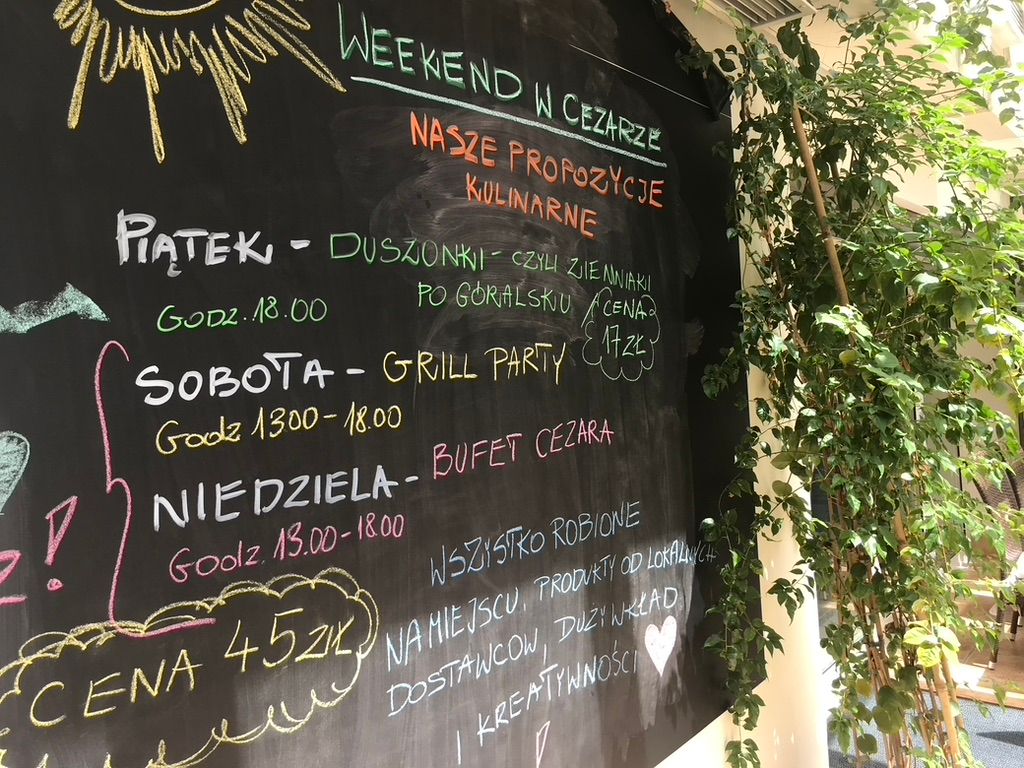 WEEKEND W CEZARZE
NASZE PROPOZYCJE
KULINARNE
PIĄTEK - DUSZONKI - CZYLI ZIEMNIAKI
PO GÓRALSKU
GODZ. 18.00
CENA
17 ZŁ
SOBOTA - GRILL PARTY
Godz 1300-18.00
NIEDZIELA - BUFET CEZARA
Godz. 13.00-1800
!
CENA 45 ZŁ
WSZYSTKO ROBIONE
NA MIEJSCU, PRODUKTY OD LOKALNYCH
DOSTAWCÓW, DUŻY WKŁAD
I KREATYWNOŚCI